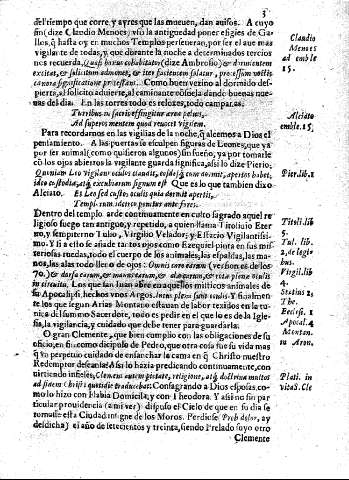 3
del tiempo que corre, y ayres que las mueuen, dan auisos. A cuyo
fin (dize Claudio Menoes) vio la antiguedad poner efigies de Ga-
llos, q̃ hasta oy en muchos Templos perseueran, por ser el aue mas
vigilante de todas, y que durante la noche a determinados tercios
nos recuerda, Quasi bonus cohabitator (dize Ambrosio) & dormientem
excitat, & sollicitum admonet, & iter facientem solatur, processum noctis
canora significatione protestans. Como buen vezino al dormido des-
pierta, al solicito aduierte, al caminante consuela dando buenas nue-
uas del dia. En las torres todo es reloxes, todo campanas.
Turribus in sacris effingitur ærea peluis,
Ad superos mentem quod reuocet vigilem.
Para recordarnos en las vigilias de la noche, q̃ alcemos a Dios el
pensamiento. A las puertas se esculpen figuras de Leones, que ya
por ser animal (como quisieron algunos) sin sueño, ya por tomarle
cõ los ojos abiertos la vigilante guarda significa, assi lo dize Pierio,
Quoniam Leo vigilans oculos claudit, eosdẽq; cum dormit, apertos habet,
ideo custodia, atq; excubiarum signum est Que es lo que tambien dixo
Alciato. Et Leo sed custos oculis quia dormit apertis,
Templorum idcirco ponitur ante fores.
Dentro del templo arde continuamente en culto sagrado aquel re-
ligioso fuego tan antiguo, y repetido, a quien llama Titoliuio Eter
no, y sempiterno Tulio, Virgilio Velador; y Estacio Vigilantissi-
mo. Y si a esto se añade tantos ojos como Ezequiel pinta en sus mis-
teriosas ruedas, todo el cuerpo de los animales, las espaldas, las ma-
nos, las alas todo lleno de ojos: Omnis caro earum (version es de los
70.) & dorsa earum, & manus earum, & alæ earum, & rotæ plenæ oculis
in circuitu. Los que san Iuan abre en aquellos misticos animales de
su Apocalipsi, hechos vnos Argos. Intus plena sunt oculis Y finalmen-
te los que segun Arias Montano estauan de labor texidos en la tu-
nica del summo Sacerdote, todo es pedir en el que lo es de la Igle-
sia, la vigilancia, y cuidado que debe tener para guardarla.
O gran Clemente, que bien cumplio con las obligaciones de su
oficio, en fin como dicipulo de Pedro, que otra cosa fue su vida mas
q̃ vn perpetuo cuidado de ensanchar la cama en q̃ Christo nuestro
Redemptor descansa: Assi lo hazia predicando continuamente, con
uirtiendo infieles, Clemens autem pietate, religione, atq; doctrina multos
ad fidem Christi quotidie traducebat. Consagrando a Dios esposas, co-
mo lo hizo con Flabia Domicila, y con Theodora. Y assi no sin par
ticular prouidencia (a mi ver) dispuso el Cielo de que en su dia se
tomasse esta Ciudad insigne de los Moros. Perdiose Proh dolor, ay
desdicha) el año de setecientos y treinta, siendo Prelado suyo otro
Clemente
Claudio
Menoes
ad emble
15.
Alciato
emble. 15.
Pier. lib. 1
Tituli. lib
5.
Tul. lib.
2. de legi-
bus.
Virgil. lib
4.
Statius 2.
The.
Ezechi. 1
Apocal. 4
Montan.
in Aron.
Plati. in
vita S. Cle